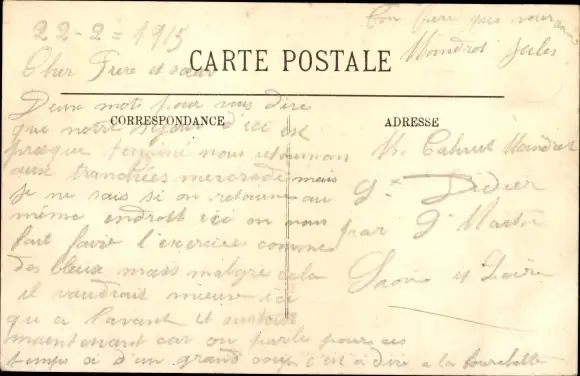 22-2-1915
Cher Frère et sœur
CARTE POSTALE
CORRESPONDANCE
Deux mots pour vous dire
que notre séjour d'ici est
presque terminé nous retournons
aux tranchées mercredi mais
je ne sais si on retourne au
même endroit ici on nous
fait faire l'exercice comme
des bleux mais malgré cela
il vaudrait mieux ici
qu a l'avant et surtout
maintenant car on parle pour ces
temps ci d'un grand coup c'est a dire a la fourchette
Ton frère que vous
Mandrot Jules
ADRESSE
M. Mandrot
Gx Didier
par St Martin
Saone et Loire